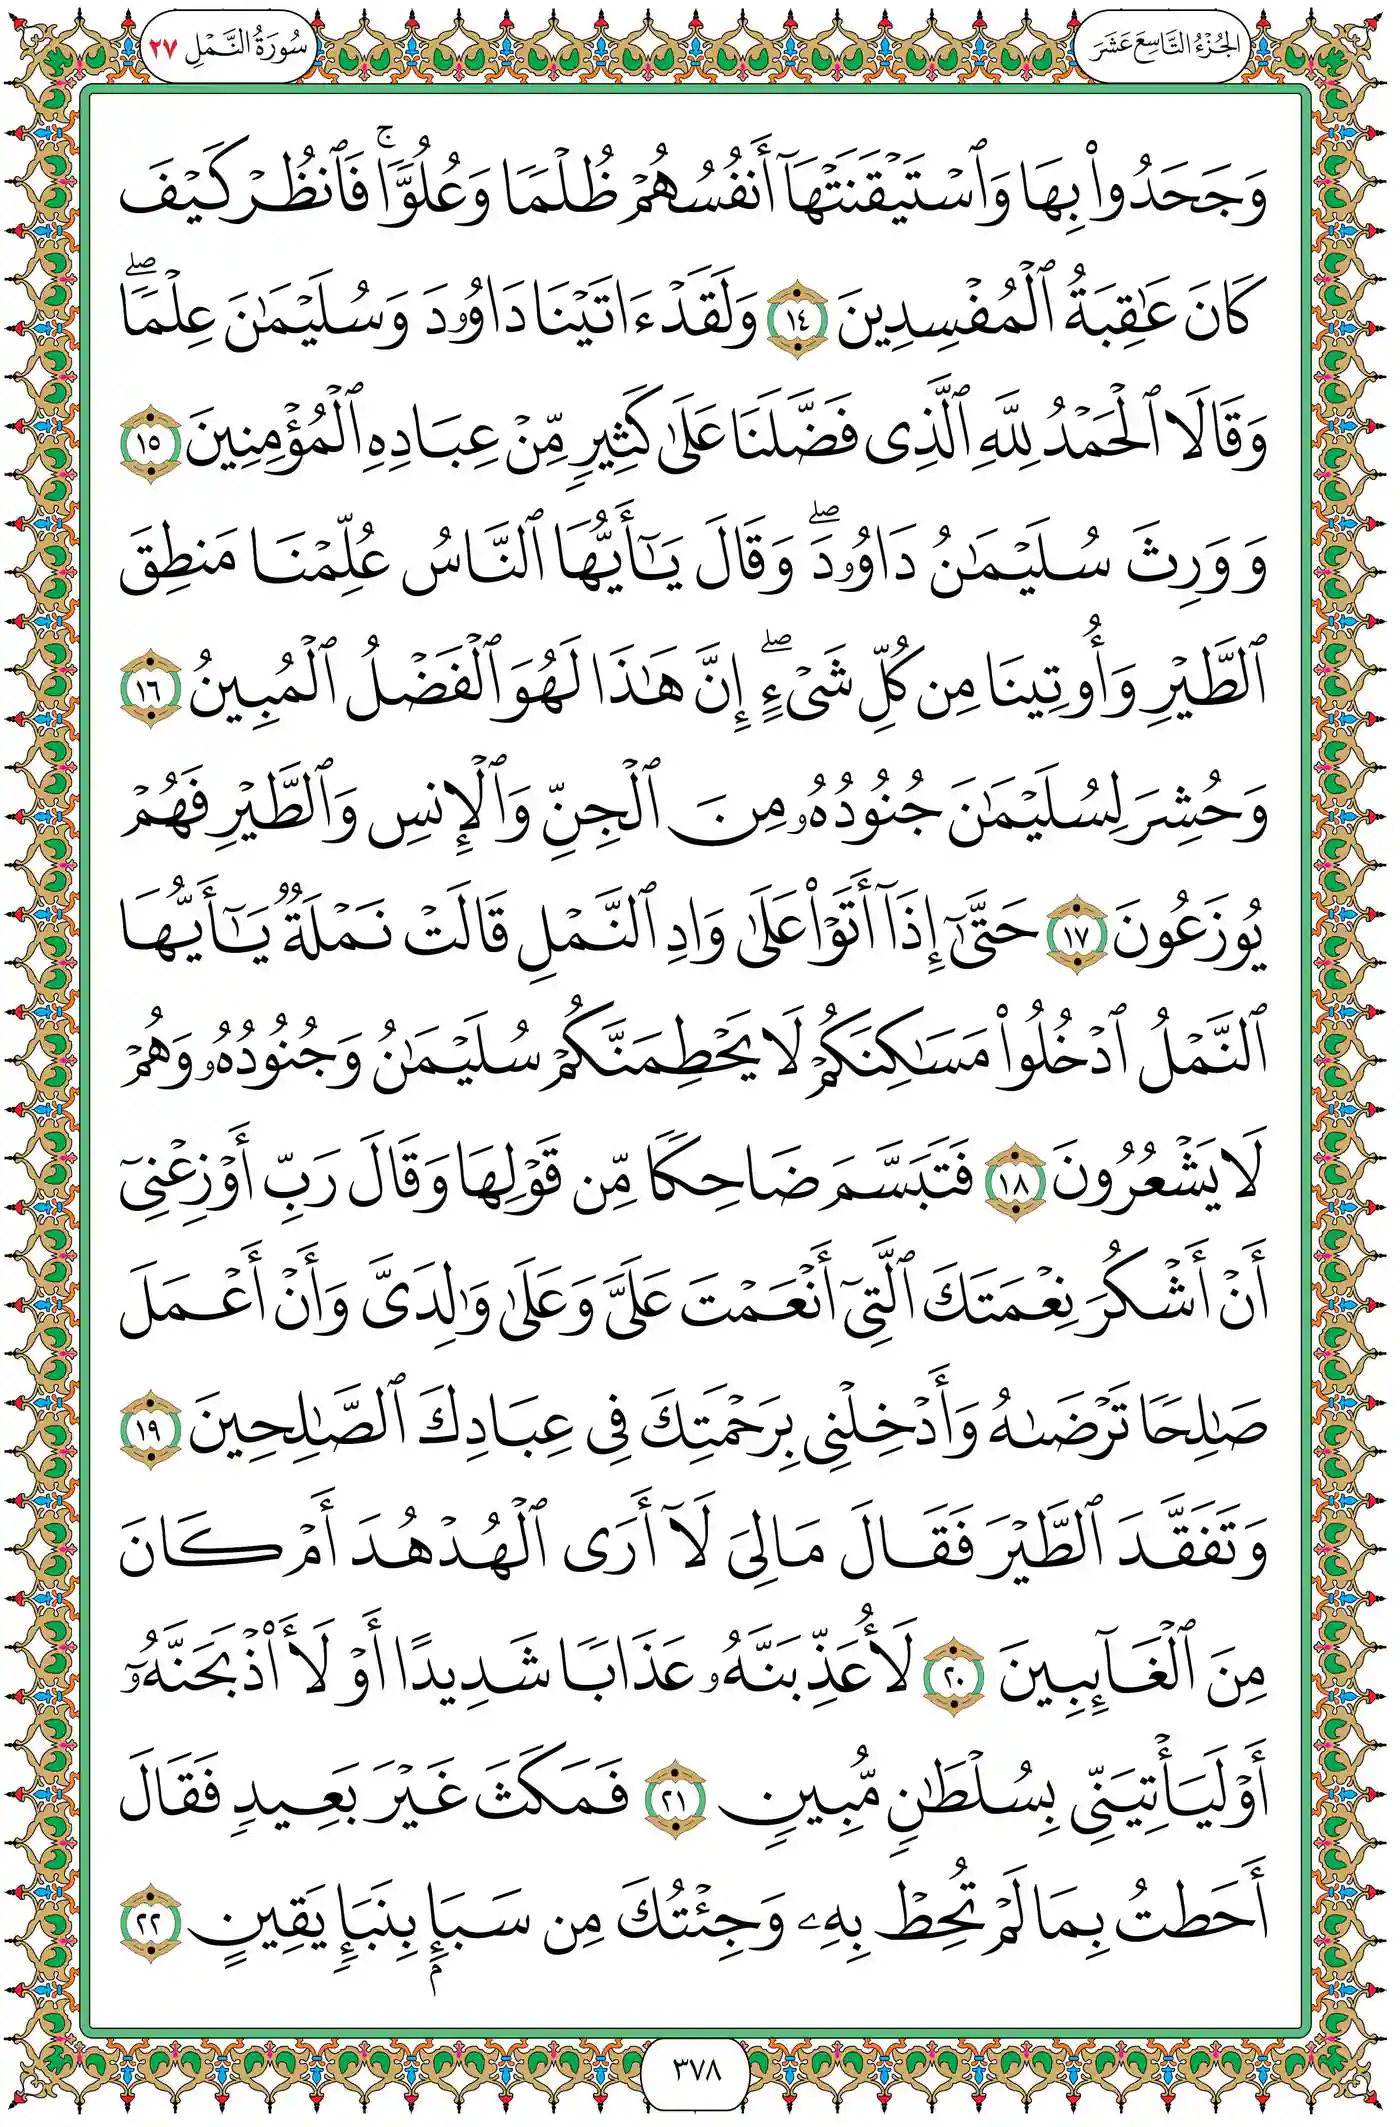 الجُزْءُ التَّاسِعَ عَشَرَ
سُورَةُ النَّمْلِ ٢٧
وَجَحَدُواْ بِهَا وَٱسۡتَيۡقَنَتۡهَآ أَنفُسُهُمۡ ظُلۡمٗا وَعُلُوّٗاۚ فَٱنظُرۡ كَيۡفَ
كَانَ عَٰقِبَةُ ٱلۡمُفۡسِدِينَ ١٤ وَلَقَدۡ ءَاتَيۡنَا دَاوُۥدَ وَسُلَيۡمَٰنَ عِلۡمٗاۖ
وَقَالَا ٱلۡحَمۡدُ لِلَّهِ ٱلَّذِي فَضَّلَنَا عَلَىٰ كَثِيرٖ مِّنۡ عِبَادِهِ ٱلۡمُؤۡمِنِينَ ١٥
وَوَرِثَ سُلَيۡمَٰنُ دَاوُۥدَۖ وَقَالَ يَٰٓأَيُّهَا ٱلنَّاسُ عُلِّمۡنَا مَنطِقَ
ٱلطَّيۡرِ وَأُوتِينَا مِن كُلِّ شَيۡءٍۖ إِنَّ هَٰذَا لَهُوَ ٱلۡفَضۡلُ ٱلۡمُبِينُ ١٦
وَحُشِرَ لِسُلَيۡمَٰنَ جُنُودُهُۥ مِنَ ٱلۡجِنِّ وَٱلۡإِنسِ وَٱلطَّيۡرِ فَهُمۡ
يُوزَعُونَ ١٧ حَتَّىٰٓ إِذَآ أَتَوۡاْ عَلَىٰ وَادِ ٱلنَّمۡلِ قَالَتۡ نَمۡلَةٞ يَٰٓأَيُّهَا
ٱلنَّمۡلُ ٱدۡخُلُواْ مَسَٰكِنَكُمۡ لَا يَحۡطِمَنَّكُمۡ سُلَيۡمَٰنُ وَجُنُودُهُۥ وَهُمۡ
لَا يَشۡعُرُونَ ١٨ فَتَبَسَّمَ ضَاحِكٗا مِّن قَوۡلِهَا وَقَالَ رَبِّ أَوۡزِعۡنِيٓ
أَنۡ أَشۡكُرَ نِعۡمَتَكَ ٱلَّتِيٓ أَنۡعَمۡتَ عَلَيَّ وَعَلَىٰ وَٰلِدَيَّ وَأَنۡ أَعۡمَلَ
صَٰلِحٗا تَرۡضَىٰهُ وَأَدۡخِلۡنِي بِرَحۡمَتِكَ فِي عِبَادِكَ ٱلصَّٰلِحِينَ ١٩
وَتَفَقَّدَ ٱلطَّيۡرَ فَقَالَ مَالِيَ لَآ أَرَى ٱلۡهُدۡهُدَ أَمۡ كَانَ
مِنَ ٱلۡغَآئِبِينَ ٢٠ لَأُعَذِّبَنَّهُۥ عَذَابٗا شَدِيدًا أَوۡ لَأَاْذۡبَحَنَّهُۥٓ
أَوۡ لَيَأۡتِيَنِّي بِسُلۡطَٰنٖ مُّبِينٖ ٢١ فَمَكَثَ غَيۡرَ بَعِيدٖ فَقَالَ
أَحَطتُ بِمَا لَمۡ تُحِطۡ بِهِۦ وَجِئۡتُكَ مِن سَبَإِۭ بِنَبَإٖ يَقِينٍ ٢٢
٣٧٨